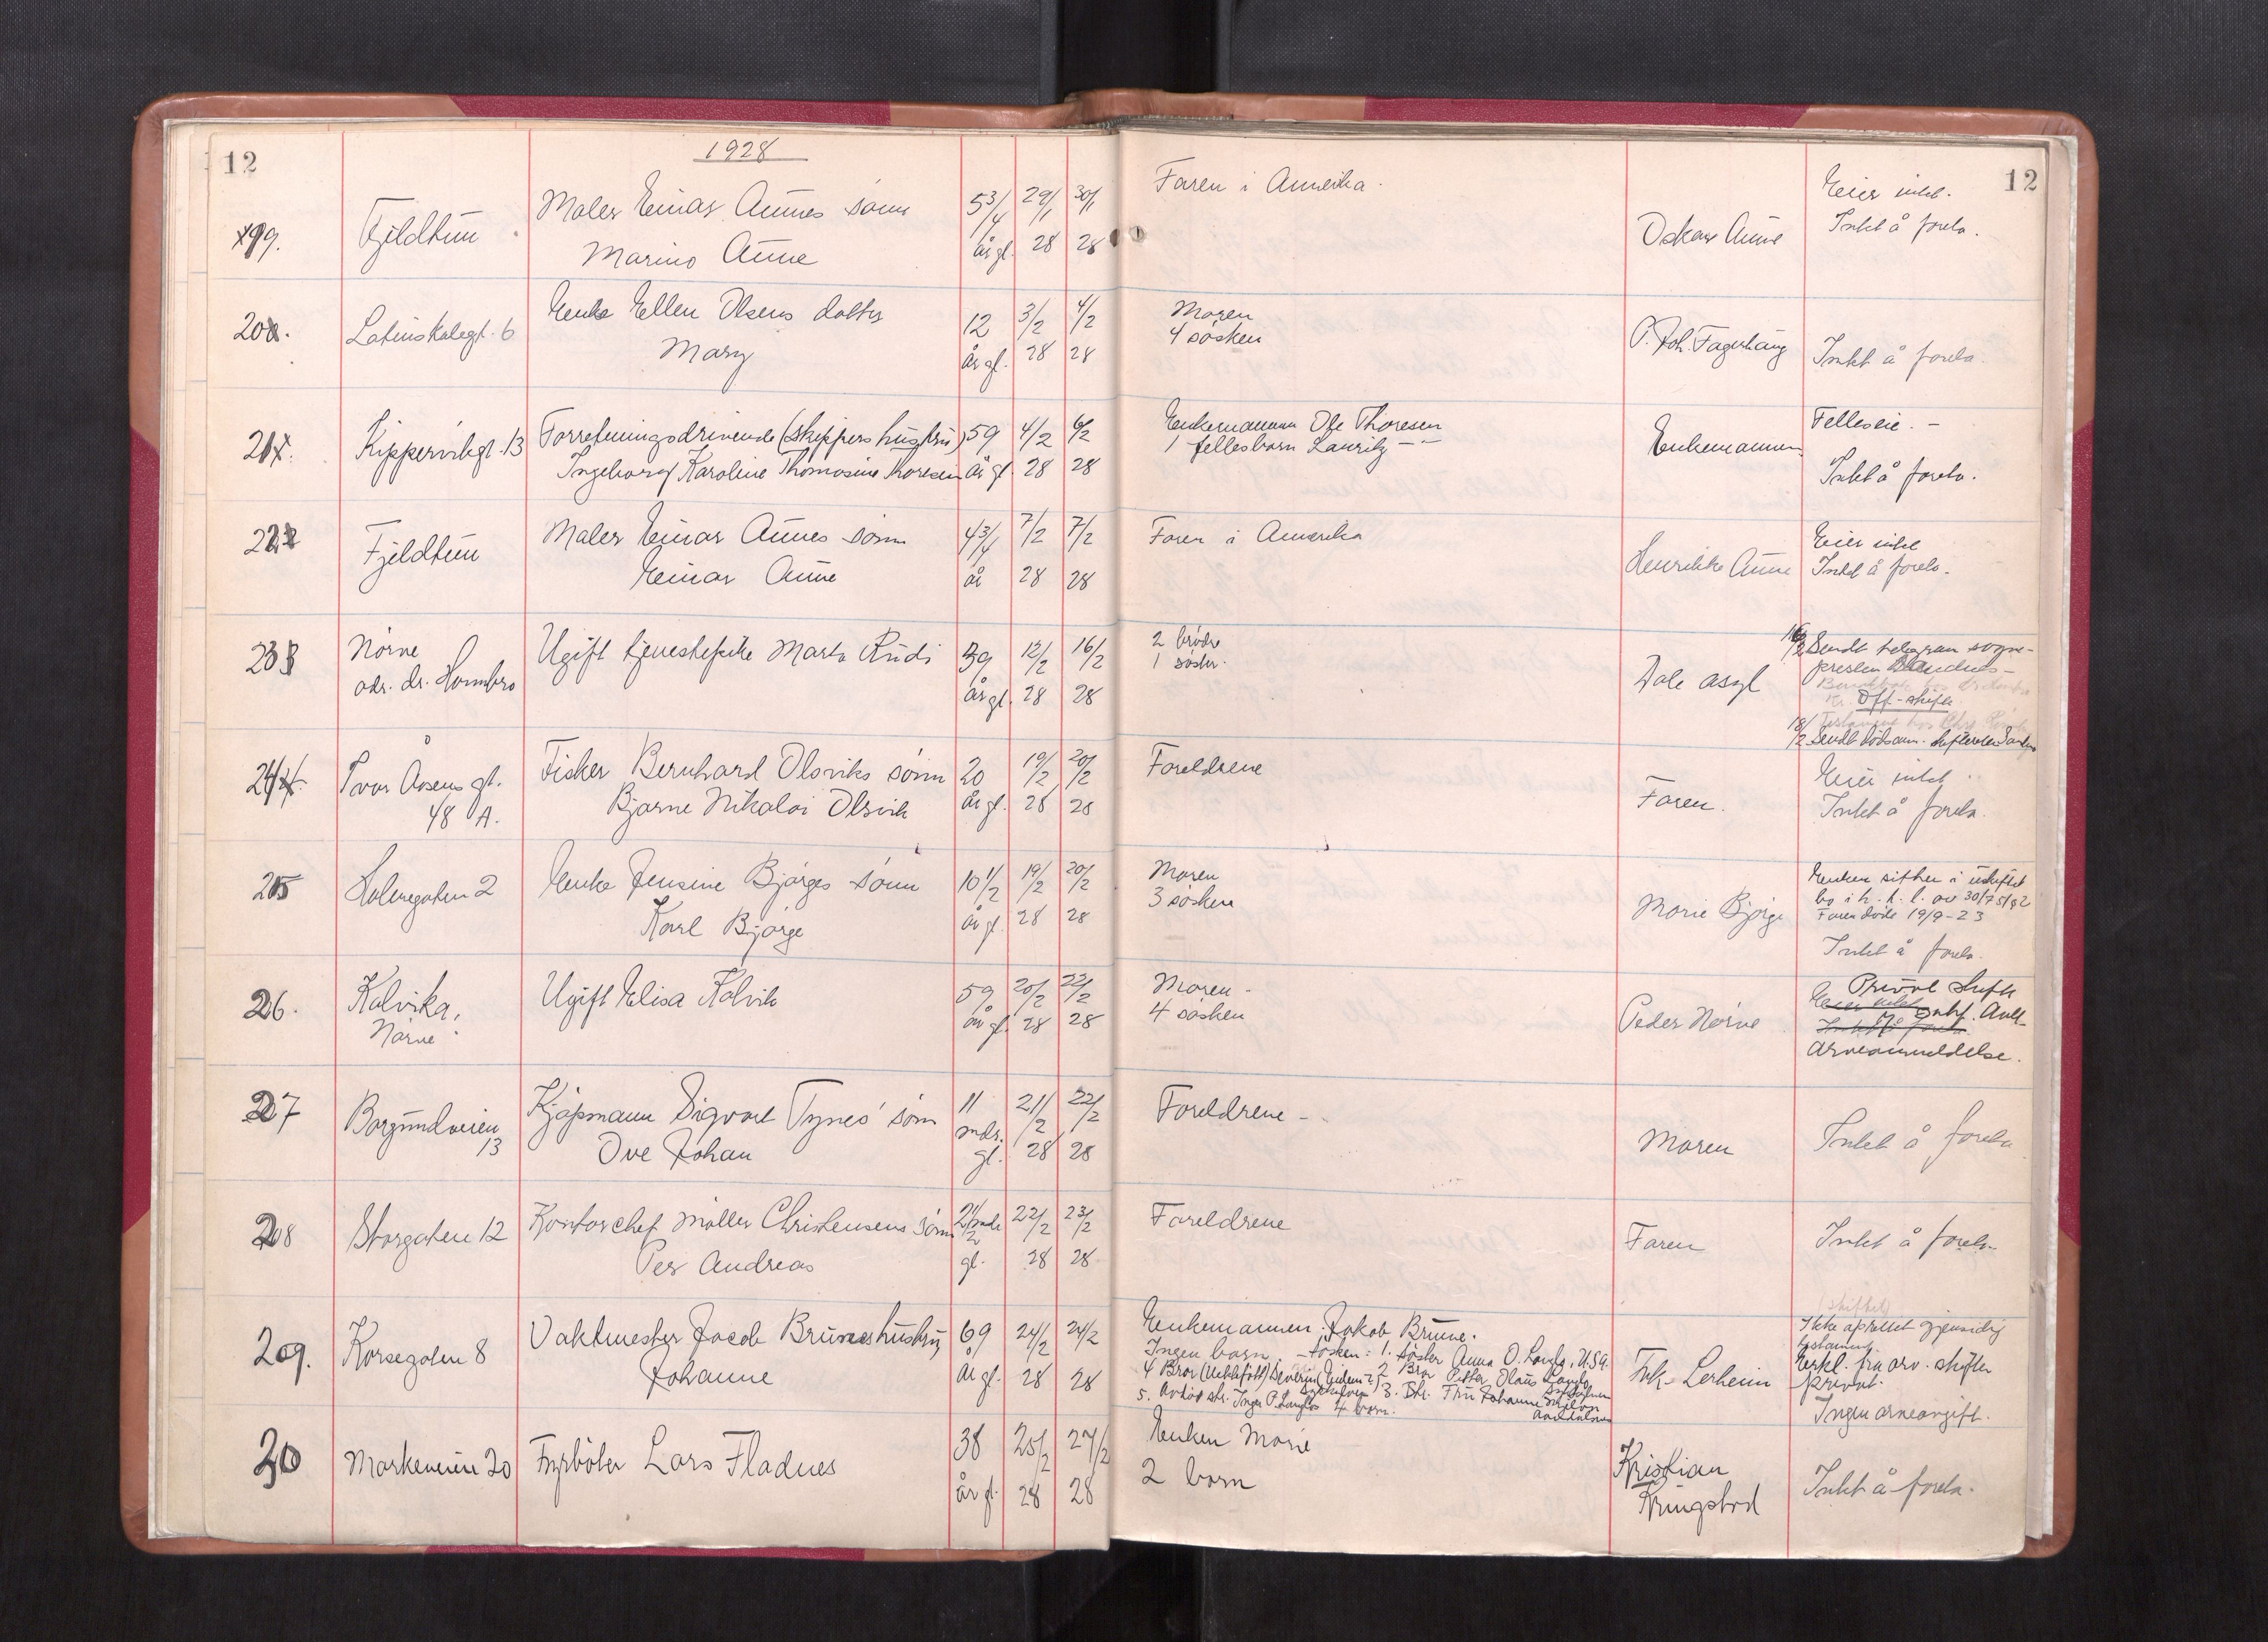 12
1928
12
19.
Fjeldtun
Maler Einar Aunes sønn
Marino Aune
5 3/4
år gl.
29/1
28
30/1
28
Faren i Amerika.
Oskar Aune
Eier intet.
Intet å foreta.
20.
Latinskolegt. 6
Enke Ellen Olsens datter
Mary
12
år gl.
3/2
28
4/2
28
Moren
4 søsken
P. Joh. Fagerhaug
Intet å foreta.
21.
Kippervikgt. 13
Forretningsdrivende (skippers hustru)
Ingeborg Karoline Thomasine Thoresen
59
år gl.
4/2
28
6/2
28
Enkemannen Ole Thoresen
1 fellesbarn Lauritz —"—
Enkemannen
Felleseie. -
Intet å foreta.
22
Fjeldtun
Maler Einar Aunes sønn
Einar Aune
4 3/4
år
7/2
28
7/2
28
Faren i Amerika
Henrikke Aune
Eier intet
Intet å foreta.
23
Nørve
adr. dr. Hombro
Ugift tjenestepike Marta Rudi
39
år gl.
12/2
28
16/2
28
2 brødre
1 søster.
Dale asyl
16/2 Sendt telegram sogne-
presten
Off. skifte
18/2 Sendt dødsanm.
24.
Ivar Åsens gt.
48 A.
Fisker Bernhard Olsviks sønn
Bjarne Nikolai Olsvik
20
år gl.
19/2
28
20/2
28
Foreldrene
Faren.
Eier intet.
Intet å foreta.
25
Holmegaten 2
Enke Jensine Bjørges sønn
Karl Bjørge
10 1/2
år gl.
19/2
28
20/2
28
Moren
3 søsken
Marie Bjørge
Enken sitter i uskiftet
bo i h. t. l. av 30/7 5/92
Faren døde 19/9-23
Intet å foreta.
26.
Kalvika,
Nørve
Ugift Elisa Kalvik
59
år gl.
20/2
28
22/2
28
Moren -
4 søsken
Peder Nørve
Privat skifte
Eier intet
Intet å foreta
arveanmeldelse.
27
Borgundveien
13
Kjøpmann Sigvart Tynes' sønn
Ove Johan
11
mdr.
gl.
21/2
28
22/2
28
Foreldrene -
Moren
Intet å foreta
28
Storgaten 12
Kontorchef Møller Christensens sønn
Per Andreas
2 1/2 mdr
gl.
22/2
28
23/2
28
Foreldrene
Faren
Intet å foreta
29.
Korsegaten 8
Vaktmester Jacob Brunes hustru
Johanne
69
år gl.
24/2
28
24/2
28
Enkemannen Jakob Brune.
Ingen barn. - søsken: 1. søster Anna O. USA.
4 Bror 2 Bror Petter Olaus
3. Str. Fru Johanne
5. Avdød str. Inger P. 4 barn.
Frk. Lerheim
(skiftet)
Ikke oprettet gjensidig
testament
Erkl. fra arv. skifter
privat.
Ingen arveavgift.
30
Markeveien 20
Fyrbøter Lars Fladnes
38
år gl.
25/2
28
27/2
28
Enken Marie
2 barn
Kristian
Kringstad
Intet å foreta.